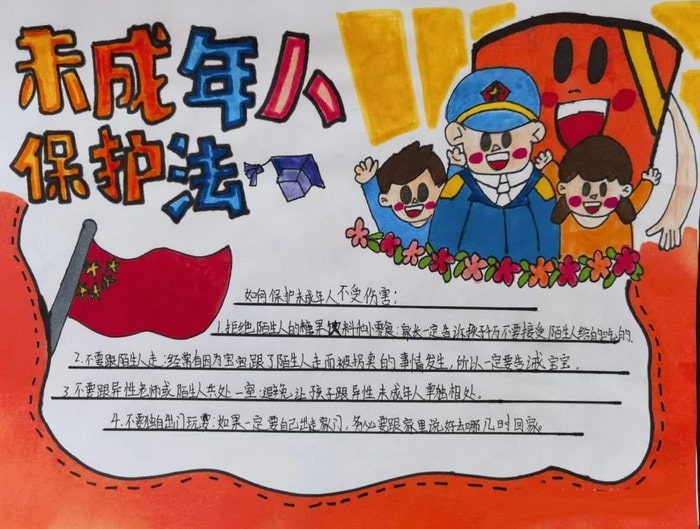 未成年人
保护法
如何保护未成年人不受伤害：
1.拒绝陌生人的糖果饮料和小零食：家长一定告诉孩子千万不要接受陌生人给的吃的.
2.不要跟陌生人走：经常有因为宝宝跟了陌生人走而被拐卖的事情发生，所以一定要告诫宝宝.
3.不要跟异性老师或陌生人共处一室：避免让孩子跟异性未成年人单独相处.
4.不要独自出门玩耍：如果一定要自己出走家门，务必要跟家里说好去哪几时回家。